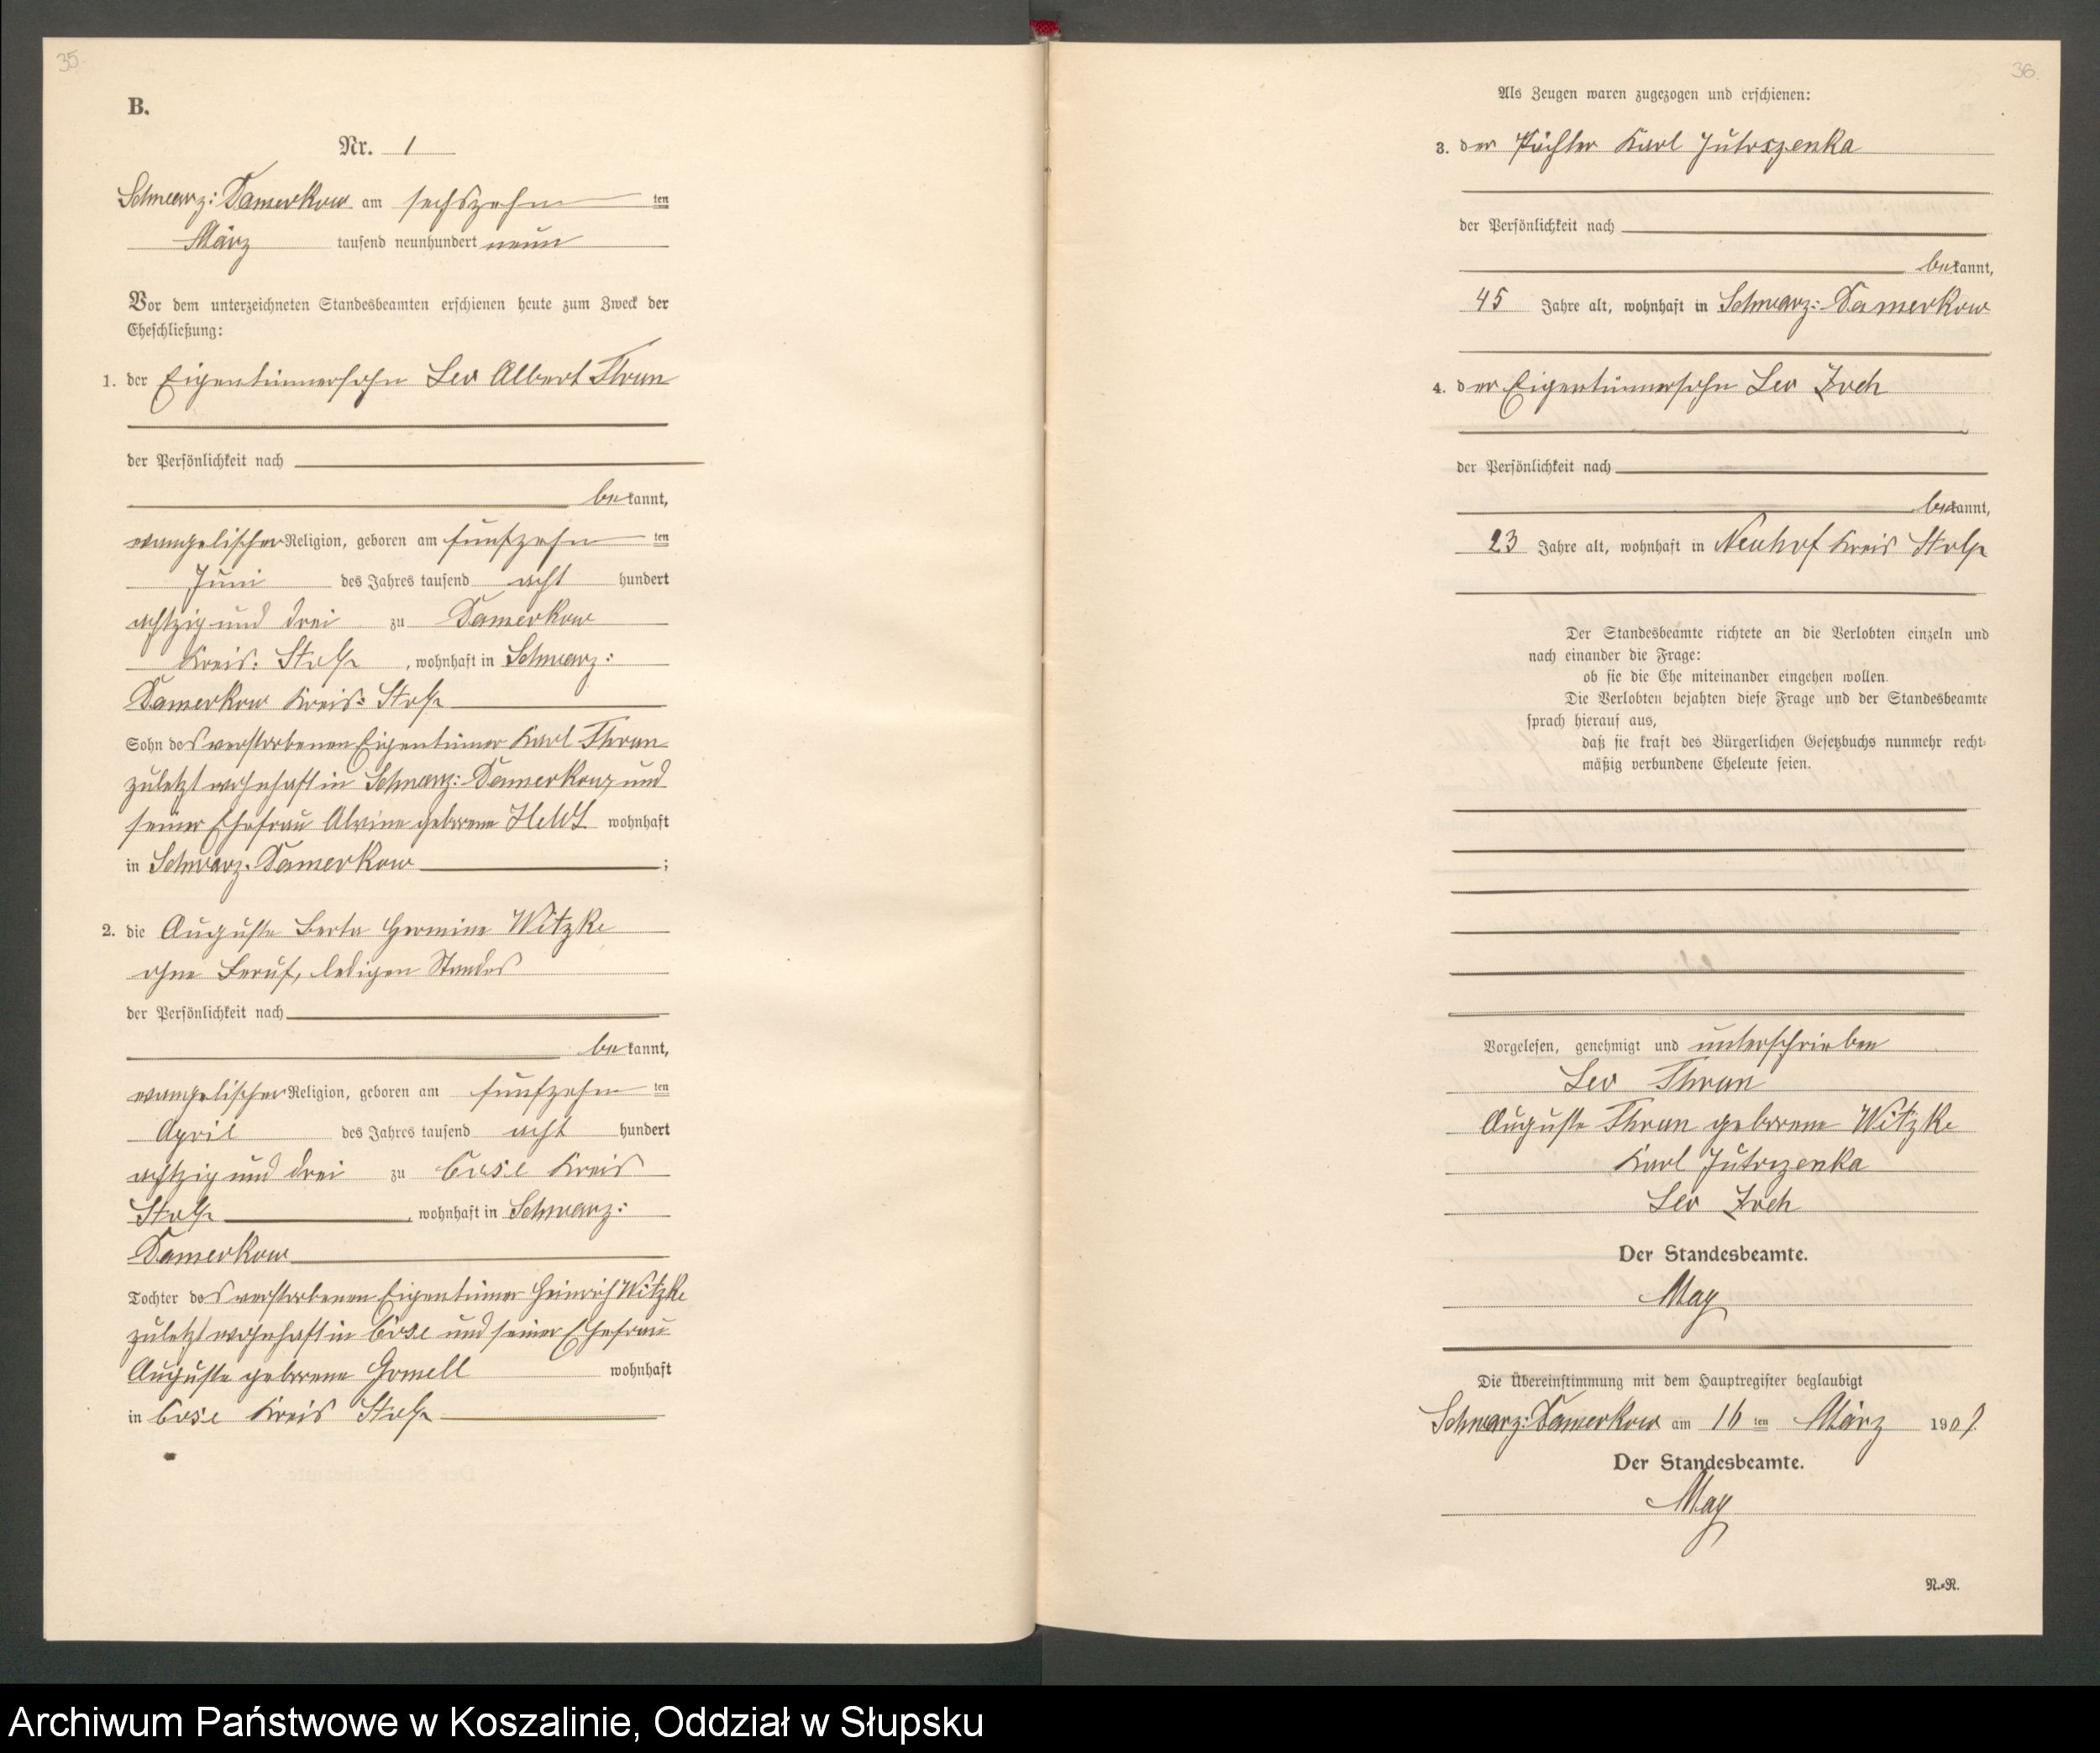 35.
B.
Nr. 1
Schwarz: Damerkow am sechszehn ten
März tausend neunhundert neun
Vor dem unterzeichneten Standesbeamten erschienen heute zum Zweck der
Eheschließung:
1. der Eigentümersohn Leo Albert Thrun
der Persönlichkeit nach
bekannt,
evangelischer Religion, geboren am fünfzehn ten
Juni des Jahres tausend acht hundert
achtzig und drei zu Damerkow
Kreis: Stolp, wohnhaft in Schwarz:
Damerkow Kreis: Stolp
Sohn des verstorbenen Eigentümer Karl Thrun
zuletzt wohnhaft in Schwarz: Damerkow, und
seiner Ehefrau Alwine geborene Heldt wohnhaft
in Schwarz. Damerkow ;
2. die Auguste Berta Hermine Witzke
ohne Beruf, ledigen Standes
der Persönlichkeit nach
bekannt,
evangelischer Religion, geboren am fünfzehn ten
April des Jahres tausend acht hundert
achtzig und drei zu Cose Kreis
Stolp, wohnhaft in Schwarz:
Damerkow
Tochter des verstorbenen Eigentümer Heinrich Witzke
zuletzt wohnhaft in Cose und seiner Ehefrau
Auguste geborene Gomell wohnhaft
in Cose Kreis Stolp
36.
Als Zeugen waren zugezogen und erschienen:
3. der Pächter Karl Jutrszenka
der Persönlichkeit nach
bekannt,
45 Jahre alt, wohnhaft in Schwarz: Damerkow
4. der Eigentümersohn Leo Zoch
der Persönlichkeit nach
bekannt,
23 Jahre alt, wohnhaft in Neuhof Kreis Stolp
Der Standesbeamte richtete an die Verlobten einzeln und
nach einander die Frage:
ob sie die Ehe miteinander eingehen wollen.
Die Verlobten bejahten diese Frage und der Standesbeamte
sprach hierauf aus,
daß sie kraft des Bürgerlichen Gesetzbuchs nunmehr recht-
mäßig verbundene Eheleute seien.
Vorgelesen, genehmigt und unterschrieben
Leo Thrun
Auguste Thrun geborene Witzke
Karl Jutrzenka
Leo Zoch
Der Standesbeamte.
May
Die Übereinstimmung mit dem Hauptregister beglaubigt
Schwarz: Damerkow am 16 ten März 1909.
Der Standesbeamte.
May
N.-R.
Archiwum Państwowe w Koszalinie, Oddział w Słupsku